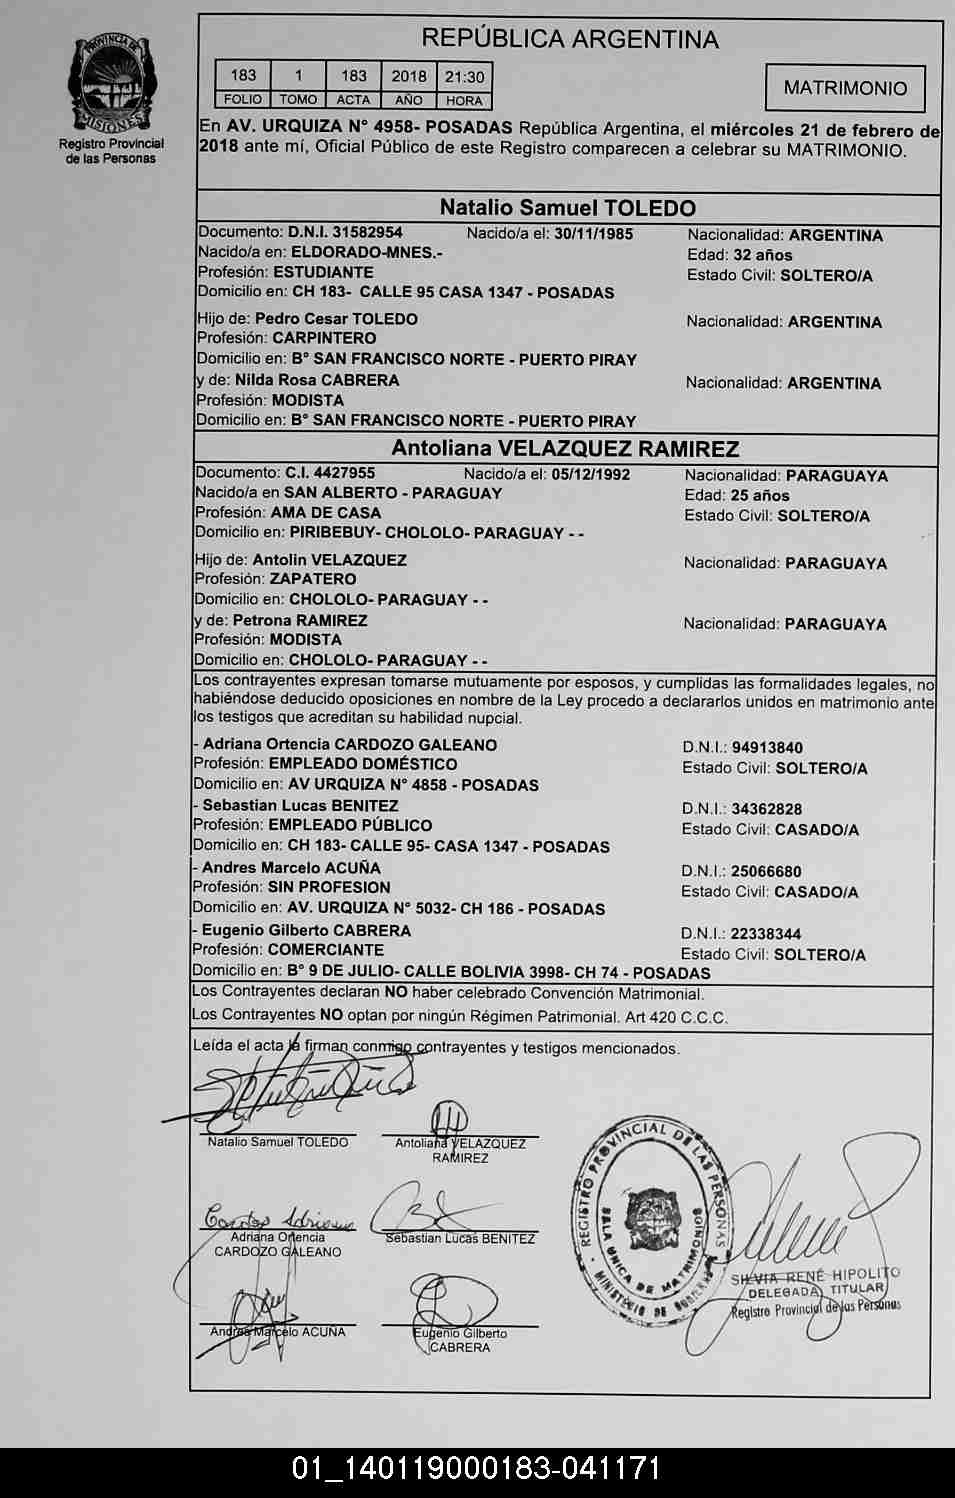 REPÚBLICA ARGENTINA
PROVINCIA DE
MISIONES
Registro Provincial
de las Personas
183 1 183 2018 21:30
FOLIO TOMO ACTA AÑO HORA
MATRIMONIO
En AV. URQUIZA N° 4958- POSADAS República Argentina, el miércoles 21 de febrero de
2018 ante mí, Oficial Público de este Registro comparecen a celebrar su MATRIMONIO.
Natalio Samuel TOLEDO
Documento: D.N.I. 31582954 Nacido/a el: 30/11/1985 Nacionalidad: ARGENTINA
Nacido/a en: ELDORADO-MNES.- Edad: 32 años
Profesión: ESTUDIANTE Estado Civil: SOLTERO/A
Domicilio en: CH 183- CALLE 95 CASA 1347 - POSADAS
Hijo de: Pedro Cesar TOLEDO Nacionalidad: ARGENTINA
Profesión: CARPINTERO
Domicilio en: B° SAN FRANCISCO NORTE - PUERTO PIRAY
y de: Nilda Rosa CABRERA Nacionalidad: ARGENTINA
Profesión: MODISTA
Domicilio en: B° SAN FRANCISCO NORTE - PUERTO PIRAY
Antoliana VELAZQUEZ RAMIREZ
Documento: C.I. 4427955 Nacido/a el: 05/12/1992 Nacionalidad: PARAGUAYA
Nacido/a en SAN ALBERTO - PARAGUAY Edad: 25 años
Profesión: AMA DE CASA Estado Civil: SOLTERO/A
Domicilio en: PIRIBEBUY- CHOLOLO- PARAGUAY - -
Hijo de: Antolin VELAZQUEZ Nacionalidad: PARAGUAYA
Profesión: ZAPATERO
Domicilio en: CHOLOLO- PARAGUAY - -
y de: Petrona RAMIREZ Nacionalidad: PARAGUAYA
Profesión: MODISTA
Domicilio en: CHOLOLO- PARAGUAY - -
Los contrayentes expresan tomarse mutuamente por esposos, y cumplidas las formalidades legales, no
habiéndose deducido oposiciones en nombre de la Ley procedo a declararlos unidos en matrimonio ante
los testigos que acreditan su habilidad nupcial.
- Adriana Ortencia CARDOZO GALEANO D.N.I.: 94913840
Profesión: EMPLEADO DOMÉSTICO Estado Civil: SOLTERO/A
Domicilio en: AV URQUIZA N° 4858 - POSADAS
- Sebastian Lucas BENITEZ D.N.I.: 34362828
Profesión: EMPLEADO PÚBLICO Estado Civil: CASADO/A
Domicilio en: CH 183- CALLE 95- CASA 1347 - POSADAS
- Andres Marcelo ACUÑA D.N.I.: 25066680
Profesión: SIN PROFESION Estado Civil: CASADO/A
Domicilio en: AV. URQUIZA N° 5032- CH 186 - POSADAS
- Eugenio Gilberto CABRERA D.N.I.: 22338344
Profesión: COMERCIANTE Estado Civil: SOLTERO/A
Domicilio en: B° 9 DE JULIO- CALLE BOLIVIA 3998- CH 74 - POSADAS
Los Contrayentes declaran NO haber celebrado Convención Matrimonial.
Los Contrayentes NO optan por ningún Régimen Patrimonial. Art 420 C.C.C.
Leída el acta la firman conmigo contrayentes y testigos mencionados.
Natalio Samuel TOLEDO Antoliana VELAZQUEZ
RAMIREZ
Cardozo Adriana
Adriana Ortencia Sebastian Lucas BENITEZ
CARDOZO GALEANO
Andres Marcelo ACUÑA Eugenio Gilberto
CABRERA
REGISTRO PROVINCIAL DE LAS PERSONAS
SALA UNICA DE MATRIMONIOS
MINISTERIO DE GOBIERNO
SILVIA RENÉ HIPOLITO
DELEGADA TITULAR
Registro Provincial de las Personas
01_140119000183-041171